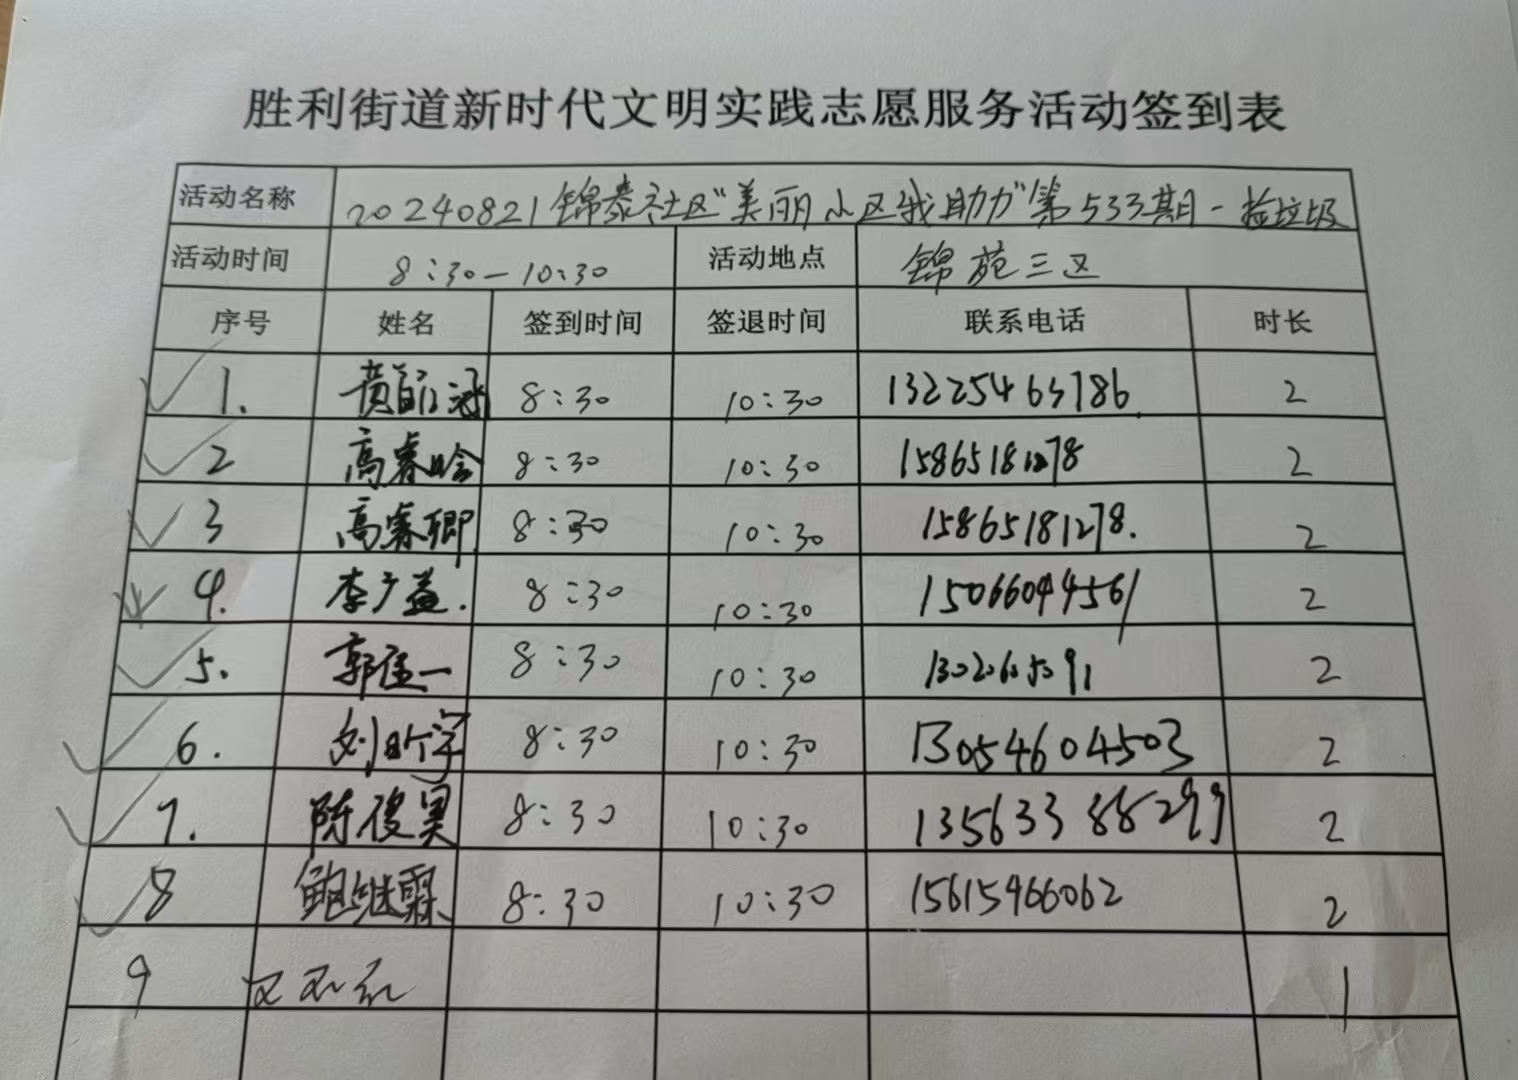 胜利街道新时代文明实践志愿服务活动签到表
活动名称 20240821锦泰社区“美丽小区我助力”第533期-捡垃圾
活动时间 8:30-10:30 活动地点 锦苑三区
序号 姓名 签到时间 签退时间 联系电话 时长
1. 8:30 10:30 13225463786 2
2 高睿晗 8:30 10:30 15865181278 2
3 高睿卿 8:30 10:30 15865181278. 2
4. 李广益. 8:30 10:30 15066044561 2
5. 8:30 10:30 2
6. 8:30 10:30 13054604503 2
7. 陈俊昊 8:30 10:30 13563388299 2
8 鲍继霖 8:30 10:30 15615466062 2
9 1